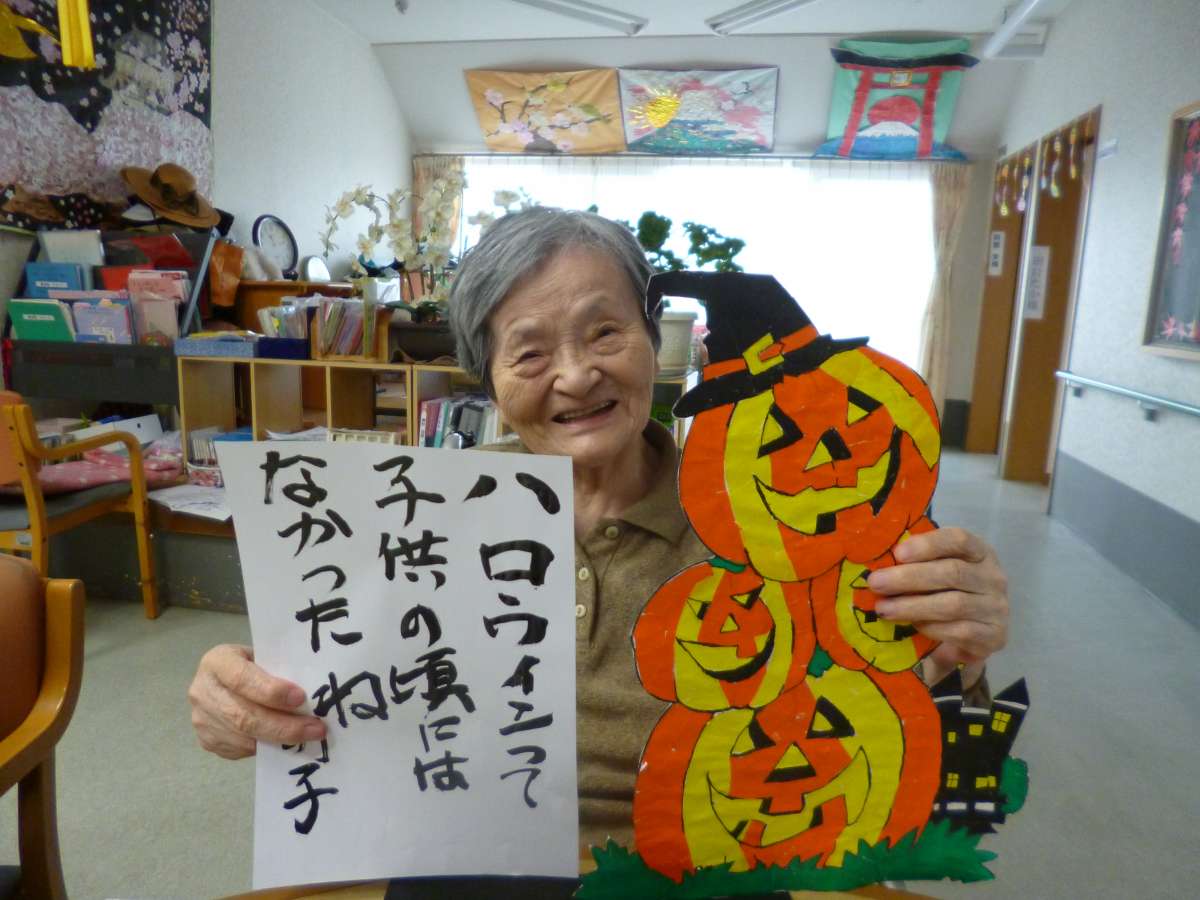 ハロウィンって
子供の頃には
なかったね
子